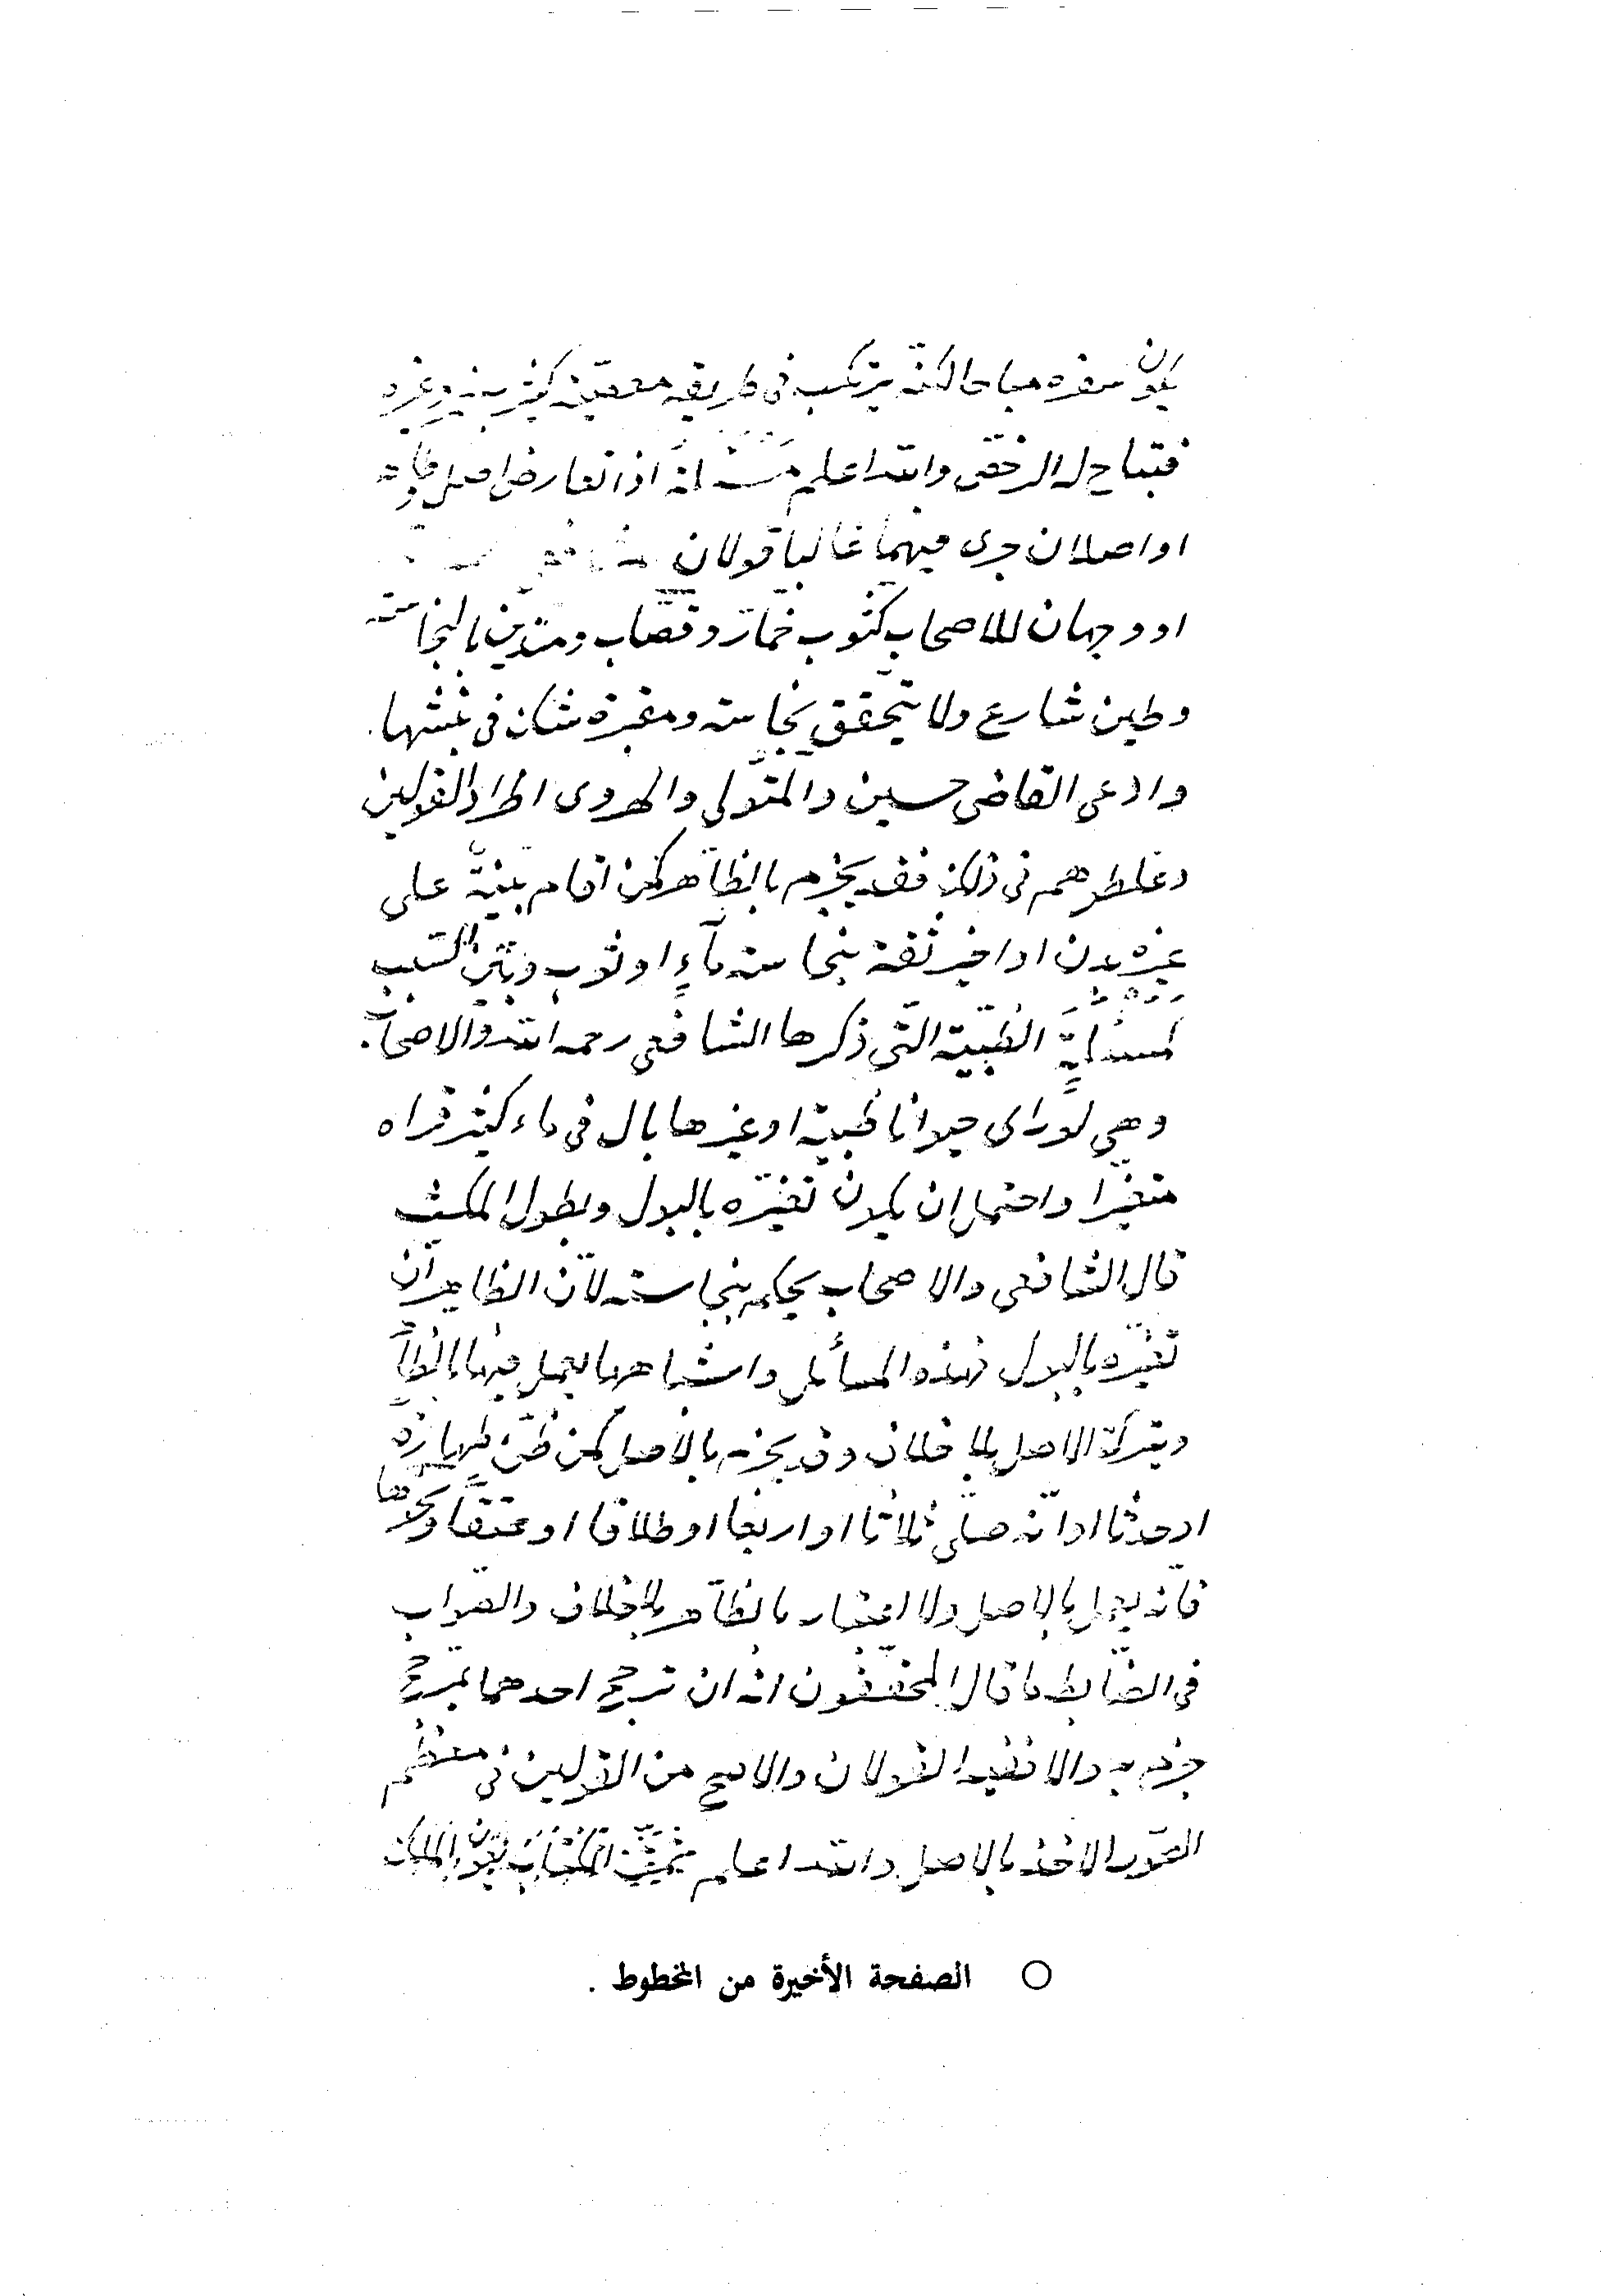 يكون سفره مباحا لكنه يرتكب في طريقه معصية كشرب خمر وغيره
فتباح له الرخص والله اعلم مسئلة اذا تعارض اصل وظاهر
او اصلان جرى فيهما غالبا قولان
او وجهان للاصحاب كثوب خمار وقصاب ومتدين بالنجاسة
وطين شارع ولا يتحقق نجاسته ومقبرة شك في نبشها.
وادعى القاضي حسين والمتولي والهروي اطراد القولين
وغلطوهم في ذلك فقد يجزم بالظاهر كمن اقام بينة على
غيره بدين او اخبر ثقة بنجاسة ماء او ثوب وبين السبب
كمسئلة الظبية التي ذكرها الشافعي رحمه الله والاصحاب.
وهي لو راى حيوانا ظبية او غيرها بال في ماء كثير فراه
متغيرا واحتمل ان يكون تغيره بالبول وبطول المكث
قال الشافعي والاصحاب يحكم بنجاسته لان الظاهر ان
تغيره بالبول فهذه المسائل واشباهها يعمل فيها بالظاهر
ويترك الاصل بلا خلاف وقد يجزم بالاصل كمن ظن طهارة
او حدثا او انه صلى ثلاثا او اربعا او طلاقا او عتقا ونحوها
فانه يعمل بالاصل ولا اعتبار بالظاهر بلا خلاف والصواب
في الضابط ما قال المحققون انه ان ترجح احدهما بمرجح
جزم به والا ففيه القولان والاصح من القولين في معظم
الصور الاخذ بالاصل والله اعلم تمت الكتاب بعون الملك
○ الصفحة الأخيرة من المخطوط .